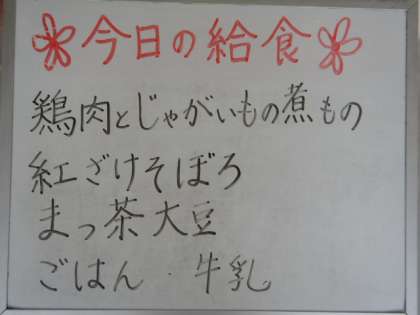 今日の給食
鶏肉とじゃがいもの煮もの
紅ざけそぼろ
まっ茶大豆
ごはん・牛乳